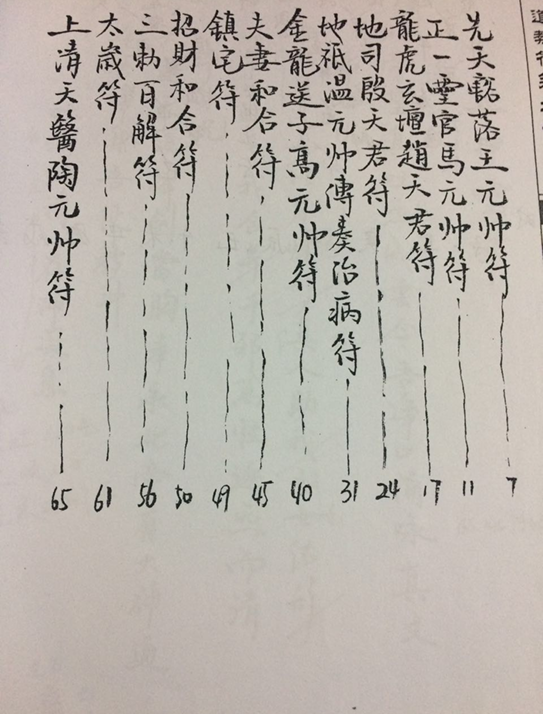 先天豁落王元帅符 7
正一靈官馬元帅符 11
龍虎玄壇趙天君符 17
地司殷天君符 24
地祇溫元帅傳奏治病符 31
金龍送子高元帅符 40
夫妻和合符 45
鎮宅符 49
招財和合符 50
三勅百解符 56
太歲符 61
上清天醫陶元帅符 65